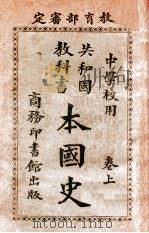 教育部審定
中學校用
共和國
教科書
本國史
卷上
商務印書館出版